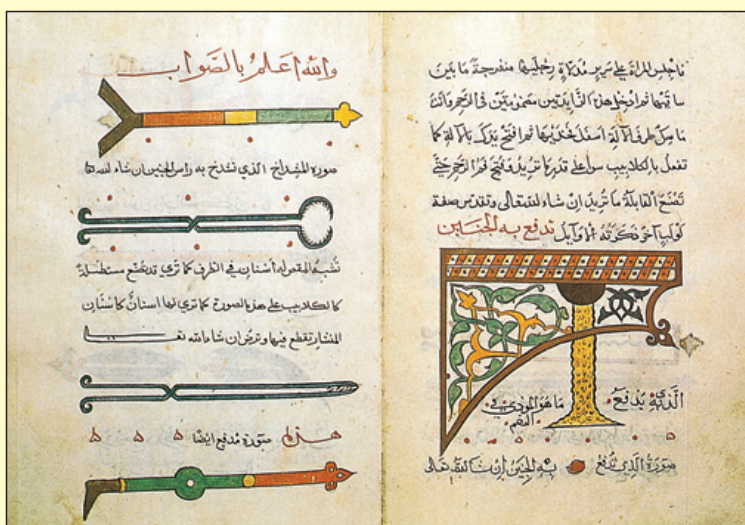 فاجلس المراة على سرير مدلاة رجليها منفرجة ما بين
ساقيها ثم ادخل هذه الزايدتين مضمومتين في الرحم وانت
ماسك طرف الآلة اسفل فخذيها ثم افتح يدك بالآلة كما
تفعل بالكلاليب سوا على قدر ما تريد فتح فم الرحم حتى
تصنع القابلة ما تريد ان شاء الله تعالى وتقدس صفة
لولب آخر ذكرته الاوايل تدفع به الجنين
الذي يدفع
صورة الذي تدفع به الجنين ان شا الله تعالى
والله اعلم بالصواب
صورة المشداخ الذي تشدخ به راس الجنين ان شاء الله
تشبه المقص له اسنان في الطرف كما ترى قد تصنع مستطيلة
كالكلاليب على هذه الصورة كما ترى لها اسنان كاسنان
المنشار تقطع فيها وترض ان شاء الله
هذه صورة مدفع ايضا ه ه ه ه